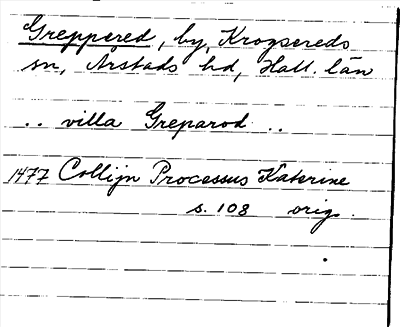 Greppered, by, Krogsereds
sn, Årstads hd, Hall. län
.. villa Greparod ..
1477 Collijn Processus Katerine
s. 108 orig.